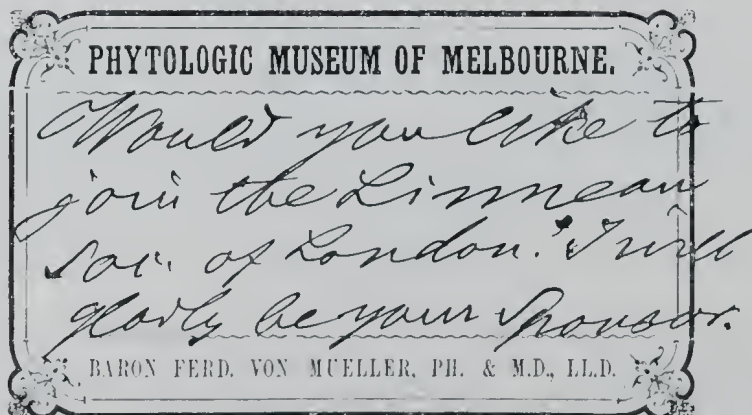 PHYTOLOGIC MUSEUM OF MELBOURNE.
Would you like to
join the Linnean
Soc. of London? I will
gladly be your Sponsor.
BARON FERD. VON MUELLER, PH. & M.D., LL.D.